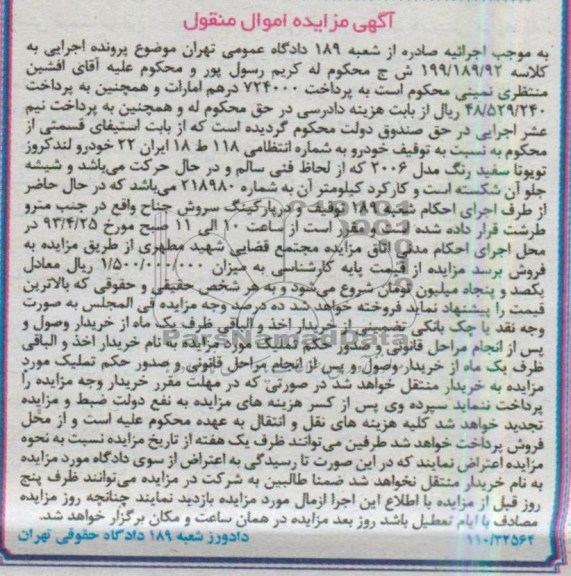 آگهی مزایده اموال منقول
به موجب اجرائیه صادره از شعبه ۱۸۹ دادگاه عمومی تهران موضوع پرونده اجرایی به
کلاسه ۱۹۹/۱۸۹/۹۲ ش ج محکوم له کریم رسول پور و محکوم علیه آقای افشین
منتظری نمینی محکوم است به پرداخت ۷۲۴۰۰۰ درهم امارات و همچنین به پرداخت
۴۸/۵۲۹/۲۴۰ ریال از بابت هزینه دادرسی در حق محکوم له و همچنین به پرداخت نیم
عشر اجرایی در حق صندوق دولت محکوم گردیده است که از بابت استیفای قسمتی از
محکوم به نسبت به توقیف خودرو به شماره انتظامی ۱۱۸ ط ۱۸ ایران ۲۲ خودرو لندکروز
تویوتا سفید رنگ مدل ۲۰۰۶ که از لحاظ فنی سالم و در حال حرکت می‌باشد و شیشه
جلو آن شکسته است و کارکرد کیلومتر آن به شماره ۲۱۸۹۸۰ می‌باشد که در حال حاضر
از طرف اجرای احکام شعبه ۱۸۹ توقیف و در پارکینگ سروش جناح واقع در جنب مترو
طرشت قرار داده شده است و مقرر است از ساعت ۱۰ الی ۱۱ صبح مورخ ۹۳/۴/۲۵ در
محل اجرای احکام مدنی اتاق مزایده مجتمع قضایی شهید مطهری از طریق مزایده به
فروش برسد مزایده از قیمت پایه کارشناسی به میزان ۱/۵۰۰/۰۰۰/۰۰۰ ریال معادل
یکصد و پنجاه میلیون تومان شروع می‌شود و به هر شخص حقیقی و حقوقی که بالاترین
قیمت را پیشنهاد نماید فروخته خواهد شد ده درصد وجه مزایده فی المجلس به صورت
وجه نقد یا چک بانکی تضمینی از خریدار اخذ و الباقی ظرف یک ماه از خریدار وصول و
پس از انجام مراحل قانونی و صدور حکم تملیک مورد مزایده به نام خریدار اخذ و الباقی
ظرف یک ماه از خریدار وصول و پس از انجام مراحل قانونی و صدور حکم تملیک مورد
مزایده به خریدار منتقل خواهد شد در صورتی که در مهلت مقرر خریدار وجه مزایده را
پرداخت ننماید سپرده وی پس از کسر هزینه های مزایده به نفع دولت ضبط و مزایده
تجدید خواهد شد کلیه هزینه های نقل و انتقال به عهده محکوم علیه است و از محل
فروش پرداخت خواهد شد طرفین می‌توانند ظرف یک هفته از تاریخ مزایده نسبت به نحوه
مزایده اعتراض نمایند که در این صورت تا رسیدگی به اعتراض از سوی دادگاه مورد مزایده
به نام خریدار منتقل نخواهد شد ضمنا طالبین به شرکت در مزایده می‌توانند ظرف پنج
روز قبل از مزایده با اطلاع این اجرا ازمال مورد مزایده بازدید نمایند چنانچه روز مزایده
مصادف با ایام تعطیل باشد روز بعد مزایده در همان ساعت و مکان برگزار خواهد شد.
۱۱۰/۳۲۵۶۴ دادورز شعبه ۱۸۹ دادگاه حقوقی تهران